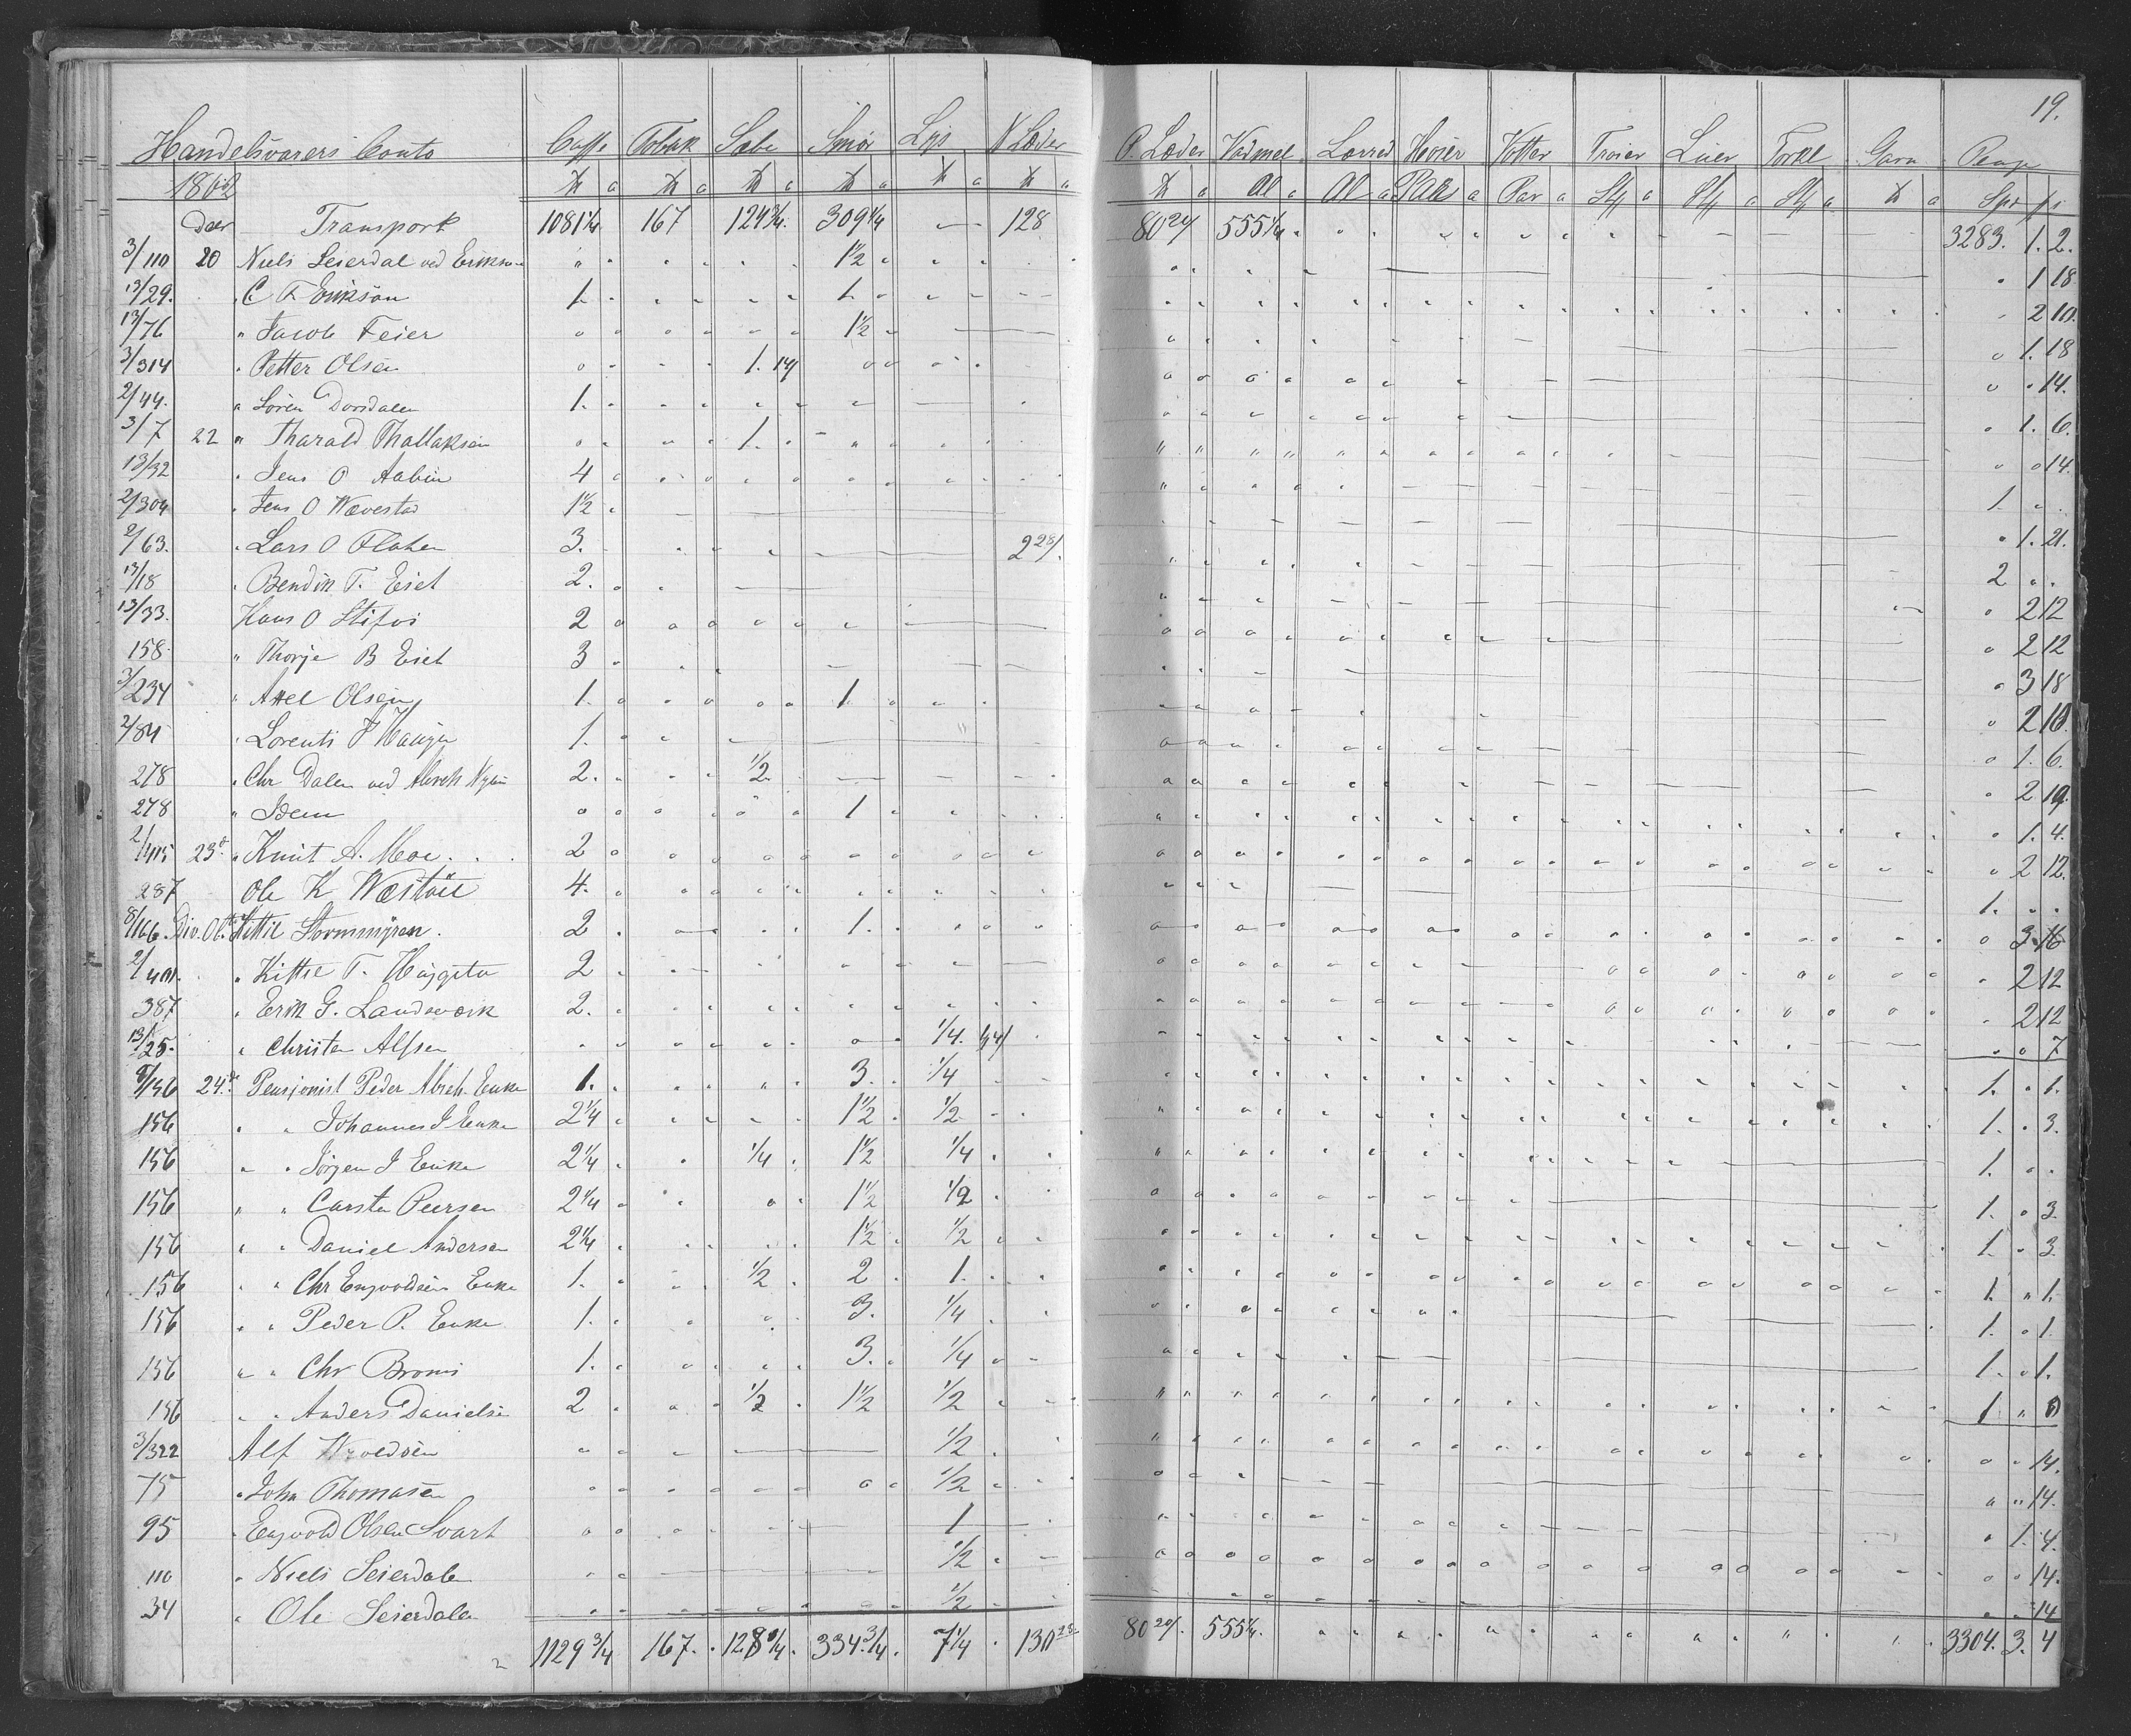 19.
Handelsvarers Conto Caffe Tobak Sæbe Smør Lys N Læder P. Læder Vadmel Lærred Hoser Votter Trøier Luer Tørkl Garn Penge
186 ℔ a ℔ a ℔ a ℔ a ℔ a ℔ a ℔ a Al a Al a Par a Par a St a St a St a ℔ a Spd
Transport 1081 1/4 167 124 3/4 309 1/4 128 80 24/ 555 1/4 3283. 1. 2.
3/110 20 Niels Seierdal ved Erikson 1 1/2 1 18
13/29. C F Erikson 1. 1. 2 10.
13/76 " Jacob Feier 1 1/2 1. 18
3/314 Petter Olsen 1. 14/ 14.
2/44. Søren Dorsdalen 1. 1. 6.
3/7 22 " Tharald Thallaksen 1. 14.
13/32 Jens O Aabøe 4 1
2/304 Jens O Wævestad 1 1/2 1. 21.
2/63. Lars O Flaten 3. 2 28/. 2
13/18 Bendik T. Eiet 2. 2 12
13/33. Hans O Stifoss 2 2 12
158. " Thorje B Eiet 3 3 18
3/234 " Axel Olsen 1. 1 2 10.
2/84 Lorents J Hauge 1. 1. 6.
278 Chr Dalen ved Abreh 2. 1/2 2 19.
278 " Idem 1 1. 4.
2/415 23de Knut A. Moe 2 2 12.
287 Ole K Wæstveit 4. 1.
8/166. Div. Ob. Kittil Stormmyren. 2 1. 3 16
2/401. Kittil T. Haggeto 2 2 12
387 Erik G. Landsverk 2. 2 12
13/25. Christen Alfsen 1/4. 7
8/156 24de Pensjonist Peder Abreh. Enke 1. 3. 1/4 1. 1.
156 " " Johannes J Enke 2 1/4 1 1/2 1/2 1. 3.
156 " " Jørgen J Enke 2 1/4 1/4 1 1/2 1/4 1.
156 " " Carsten Peersen 2 1/4 1 1/2 1/2 1. 3
156 " " Daniel Andersen 2 1/4 1 1/2 1/2 1. 3.
156 " " Chr Engvoldsens Enke 1. 1/2 2 1. 1. " 1.
156 " " Peder P. Enke 1. 3. 1/4 1. 1.
156 " " Chr Broms 1. 3. 1/4 1. 1.
156 " " Anders Danielsen 2 1/2 1 1/2 1/2 1 "
3/322 Alf 1/2 14.
75 John Thomasen 1/2 14.
95 Engvold Olsen Svart 1 1. 4.
110 Niels Seierdalen 1/2 14.
34 Ole Seierdalen 1/2 14
1129 3/4 167. 128 1/4. 334. 3/4. 7 1/4 130 28 80 24/. 555 1/4. 3304. 3. 4